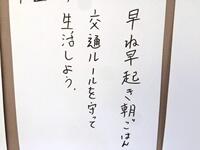 早ね早起き朝ごはん
交通ルールを守って
生活しよう.